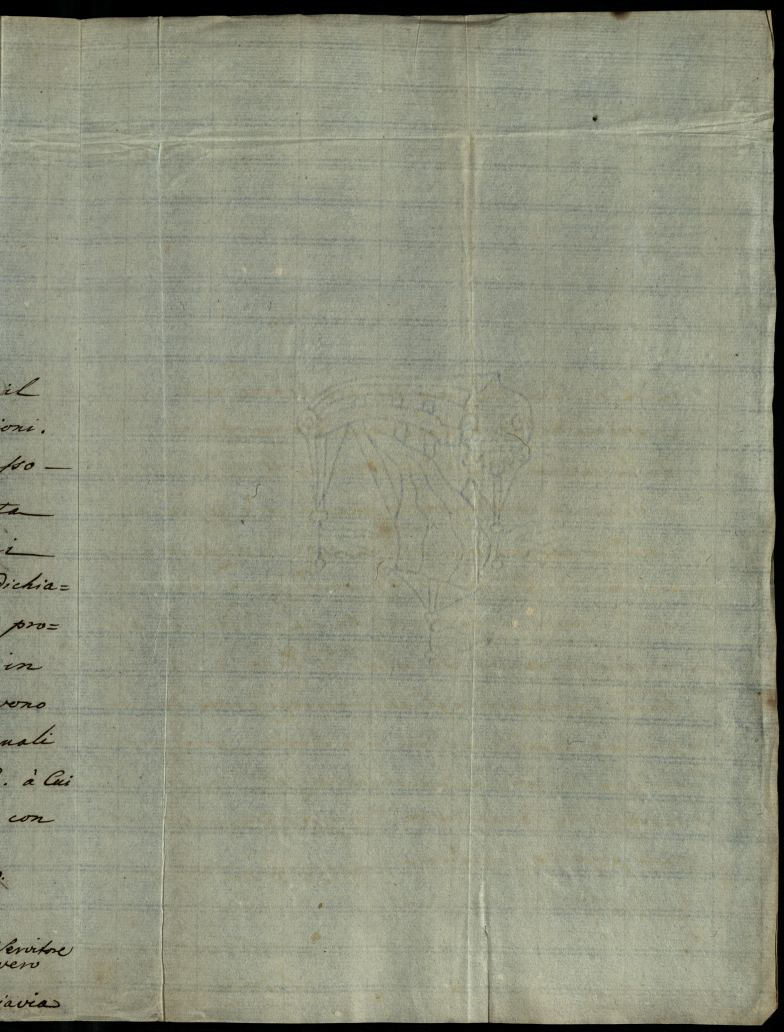 il
ioni.
sso —
ta
i
dichia=
pro=
in
vono
nali
. à Cui
con
Servitore
vero
iavia